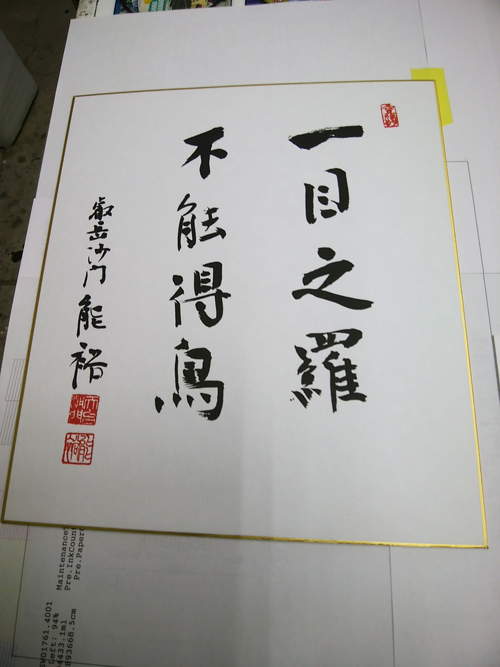 一目之羅
不能得鳥
叡岳沙門 能裕
Maintenance
Pre.InkCount
Pre.Paper
W01761-4001
Left: 94%
4433.1ml
893668.5cm